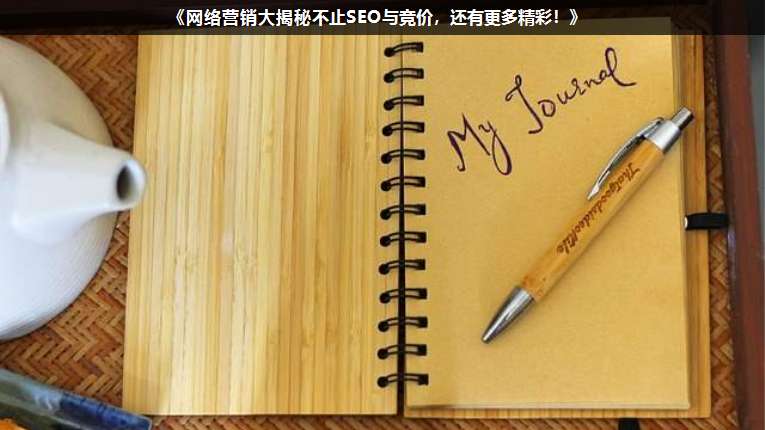 《网络营销大揭秘不止SEO与竞价，还有更多精彩！》
My Journal